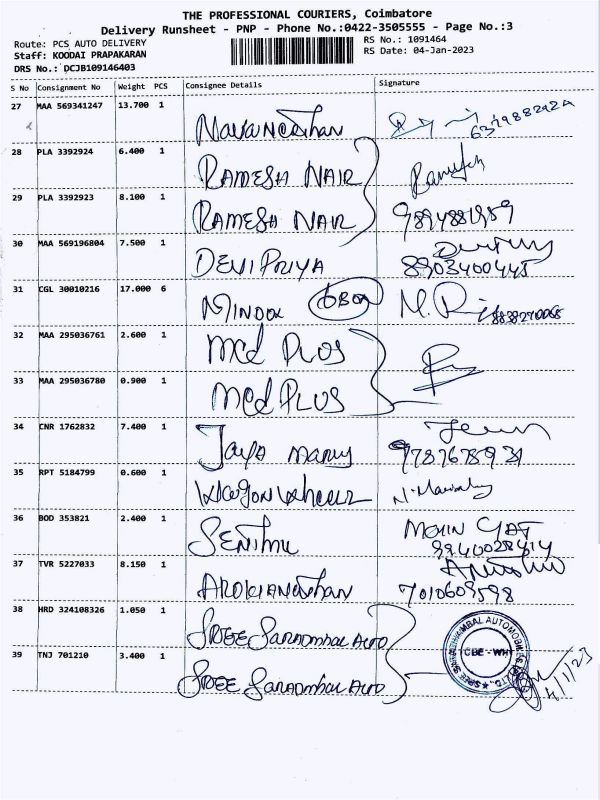 THE PROFESSIONAL COURIERS, Coimbatore
Delivery Runsheet - PNP - Phone No.:0422-3505555 - Page No.:3
Route: PCS AUTO DELIVERY RS No.: 1091464
Staff: KOODAI PRAPAKARAN RS Date: 04-Jan-2023
DRS No.: DCJB109146403
S No Consignment No Weight PCS Consignee Details Signature
27 MAA 569341247 13.700 1
28 PLA 3392924 6.400 1 RAMESH NAIR
29 PLA 3392923 8.100 1 RAMESH NAIR
30 MAA 569196804 7.500 1 DEVI PRIYA
8903400445
31 CGL 30010216 17.000 6
32 MAA 295036761 2.600 1 Med PLUS
33 MAA 295036780 0.900 1 Med PLUS
34 CNR 1762832 7.400 1 Jaya mary
35 RPT 5184799 0.600 1
36 BOD 353821 2.400 1
37 TVR 5227033 8.150 1
7010609598
38 HRD 324108326 1.050 1 SREE Saradmbal Auto
39 TNJ 701210 3.400 1 SREE Saradmbal Auto
CBE - WH
4/1/23